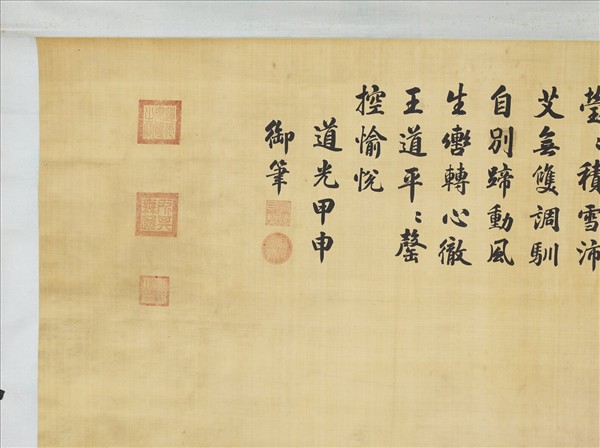 瑩〻積雪沛
艾無雙調馴
自別蹄動風
生轡轉心徹
王道平〻罄
控愉悅
道光甲申
御筆